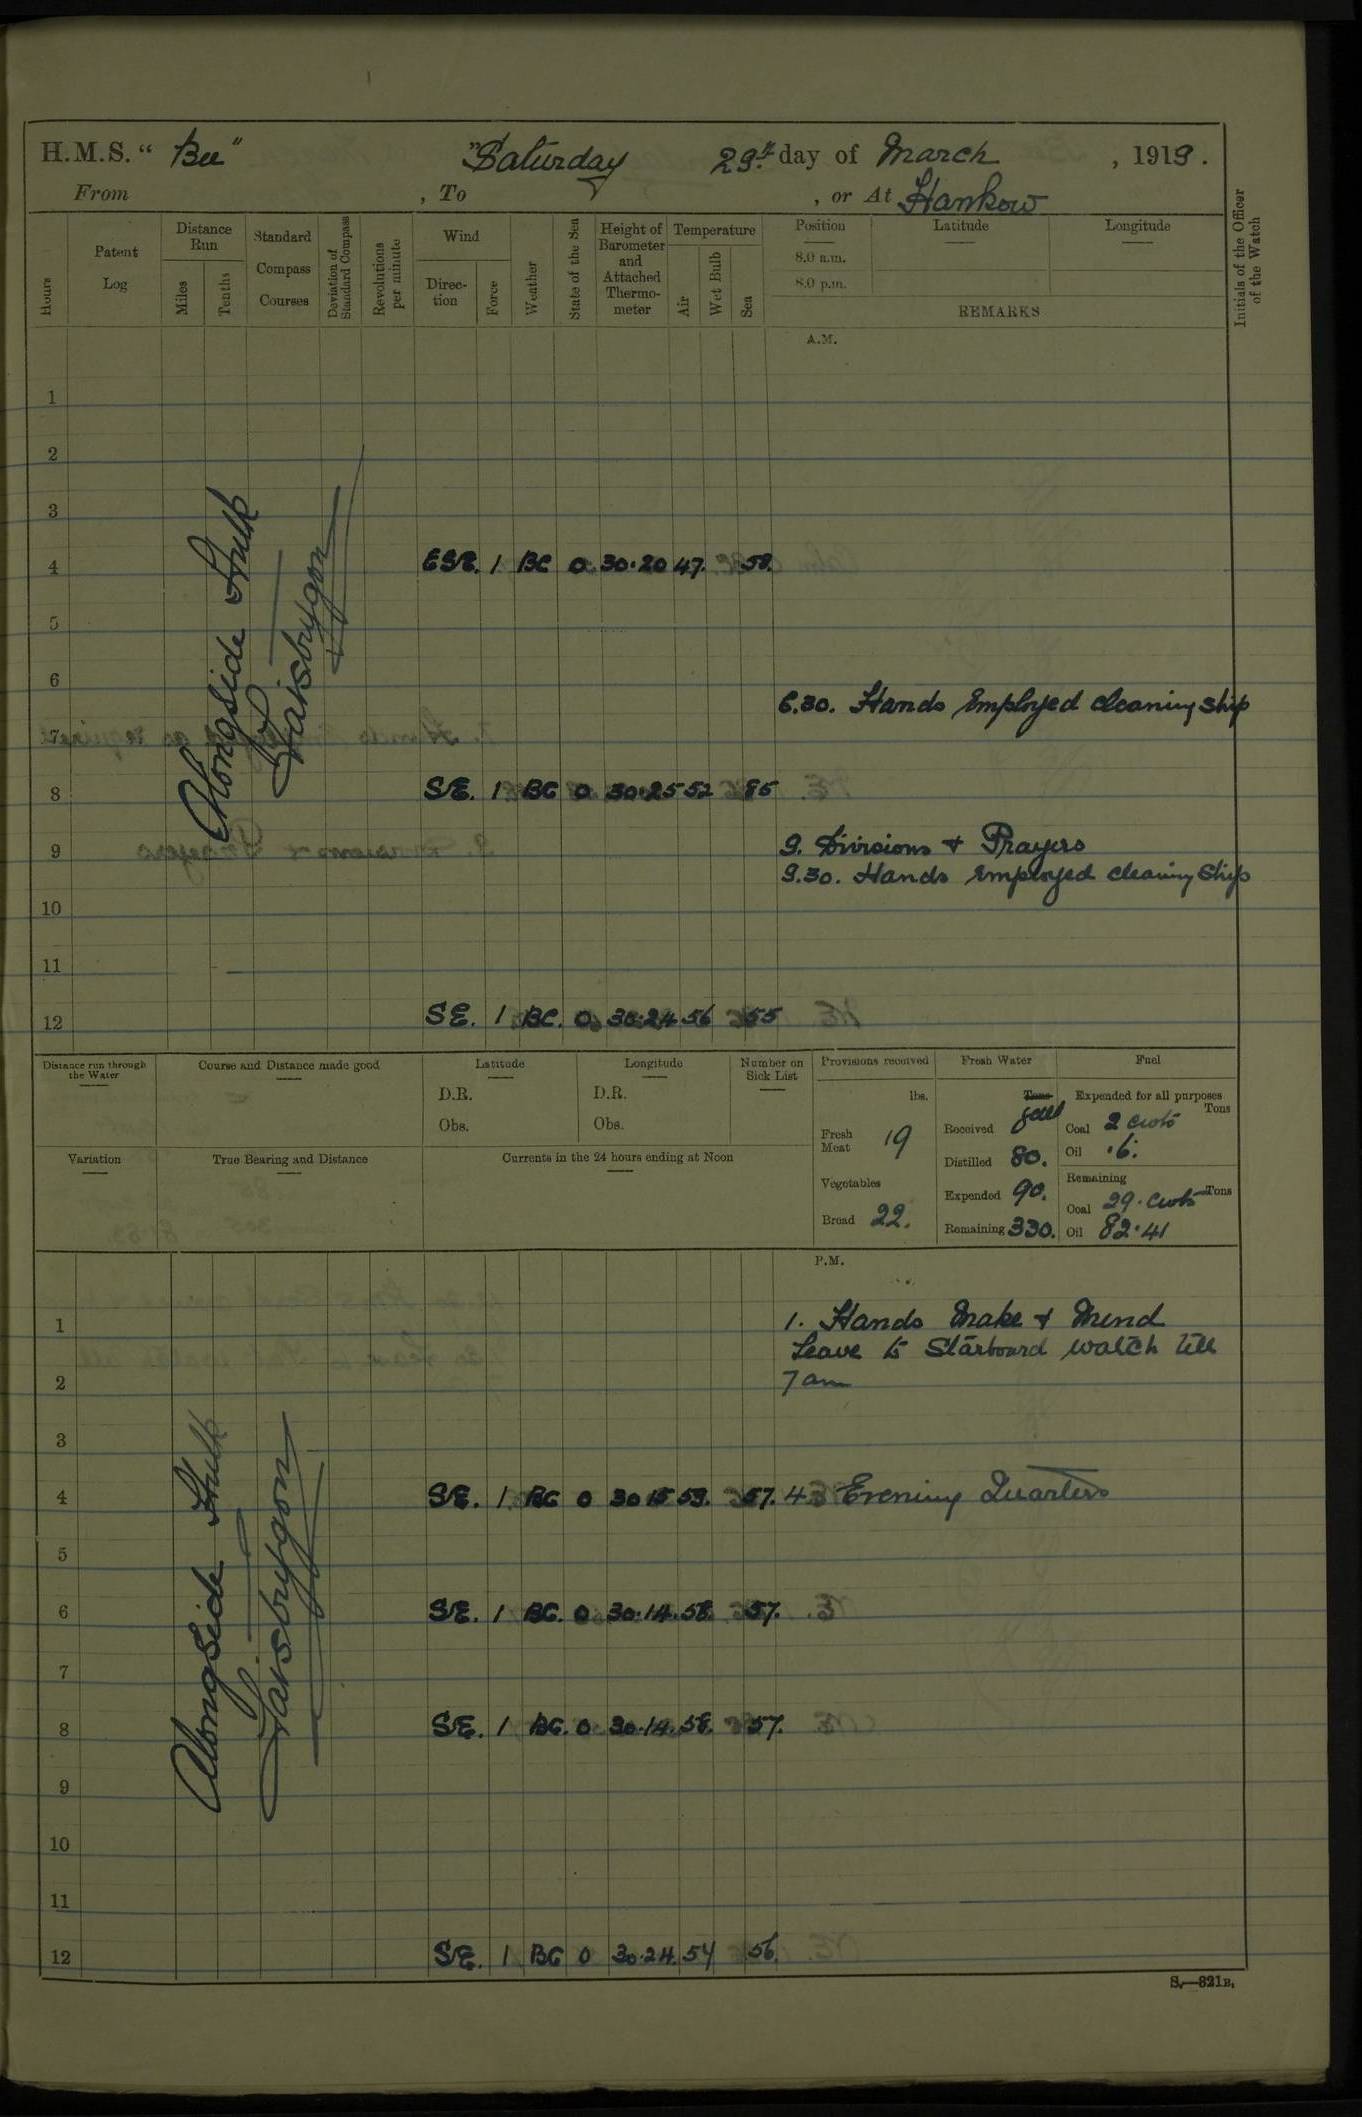 H.M.S. “ Bee ” Saturday 29th day of March , 1919.
From , To , or At Hankow
Hours
Patent Log
Distance Run
Miles
Tenths
Standard Compass Courses
Deviation of Standard Compass
Revolutions per minute
Wind
Direction
Force
Weather
State of the Sea
Height of Barometer and Attached Thermometer
Temperature
Air
Wet Bulb
Sea
Position
8.0 a.m.
8.0 p.m.
Latitude
Longitude
REMARKS
Initials of the Officer of the Watch
A.M.
1
2
3
Alongside Hulk
4 ESE. 1 BC 0 30.20 47. 58.
5
6
6.30. Hands employed cleaning ship
7
8 SE. 1 BC 0 30.25 52 55
9. Divisions + Prayers
9
9.30. Hands employed cleaning ship
10
11
12 SE. 1 BC. 0 30.24 56 55
Distance run through the Water
Course and Distance made good
Latitude
D.R.
Obs.
Longitude
D.R.
Obs.
Number on Sick List
Variation
True Bearing and Distance
Currents in the 24 hours ending at Noon
Provisions received
lbs.
Fresh Meat 19
Vegetables
Bread 22.
Fresh Water
Tons
galls
Received
Distilled 80.
Expended 90.
Remaining 330.
Fuel
Expended for all purposes
Tons
Coal 2 cwts
Oil .6.
Remaining
Coal 29. cwts Tons
Oil 82.41
P.M.
1 1. Hands Make + Mend
Leave to Starboard watch till
2 7am
3
Alongside Hulk
4 SE. 1 BC 0 30 15 59. 57. 4 Evening Quarters
5
6 SE. 1 BC. 0 30.14. 58. 57.
7
8 SE. 1 BC. 0 30.14. 58. 57.
9
10
11
12 SE. 1 BC 0 30.24. 54 56.
S.—321B.